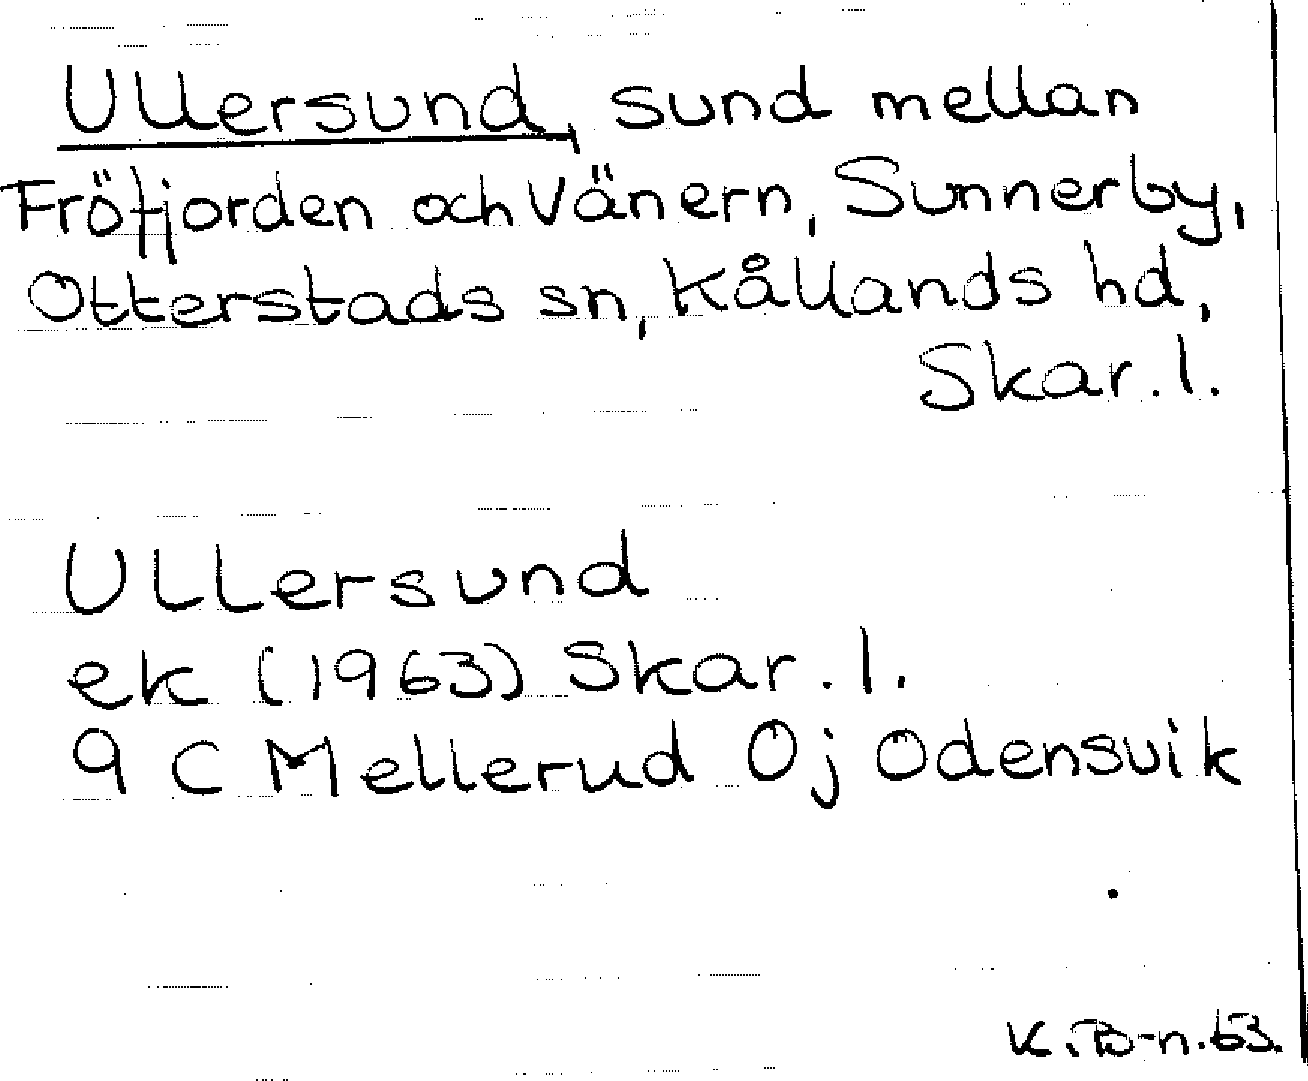 Ullersund, sund mellan
Fröfjorden och Vänern, Sunnerby,
Otterstads sn, Kållands hd,
Skar. l.
Ullersund
ek (1963) Skar. l.
9 C Mellerud 0j Odensvik
K. B-n. 63.